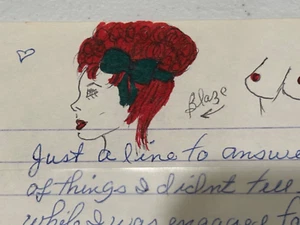 Blaze
Just a line to answe
of things I didnt tell
while I was engaged fo